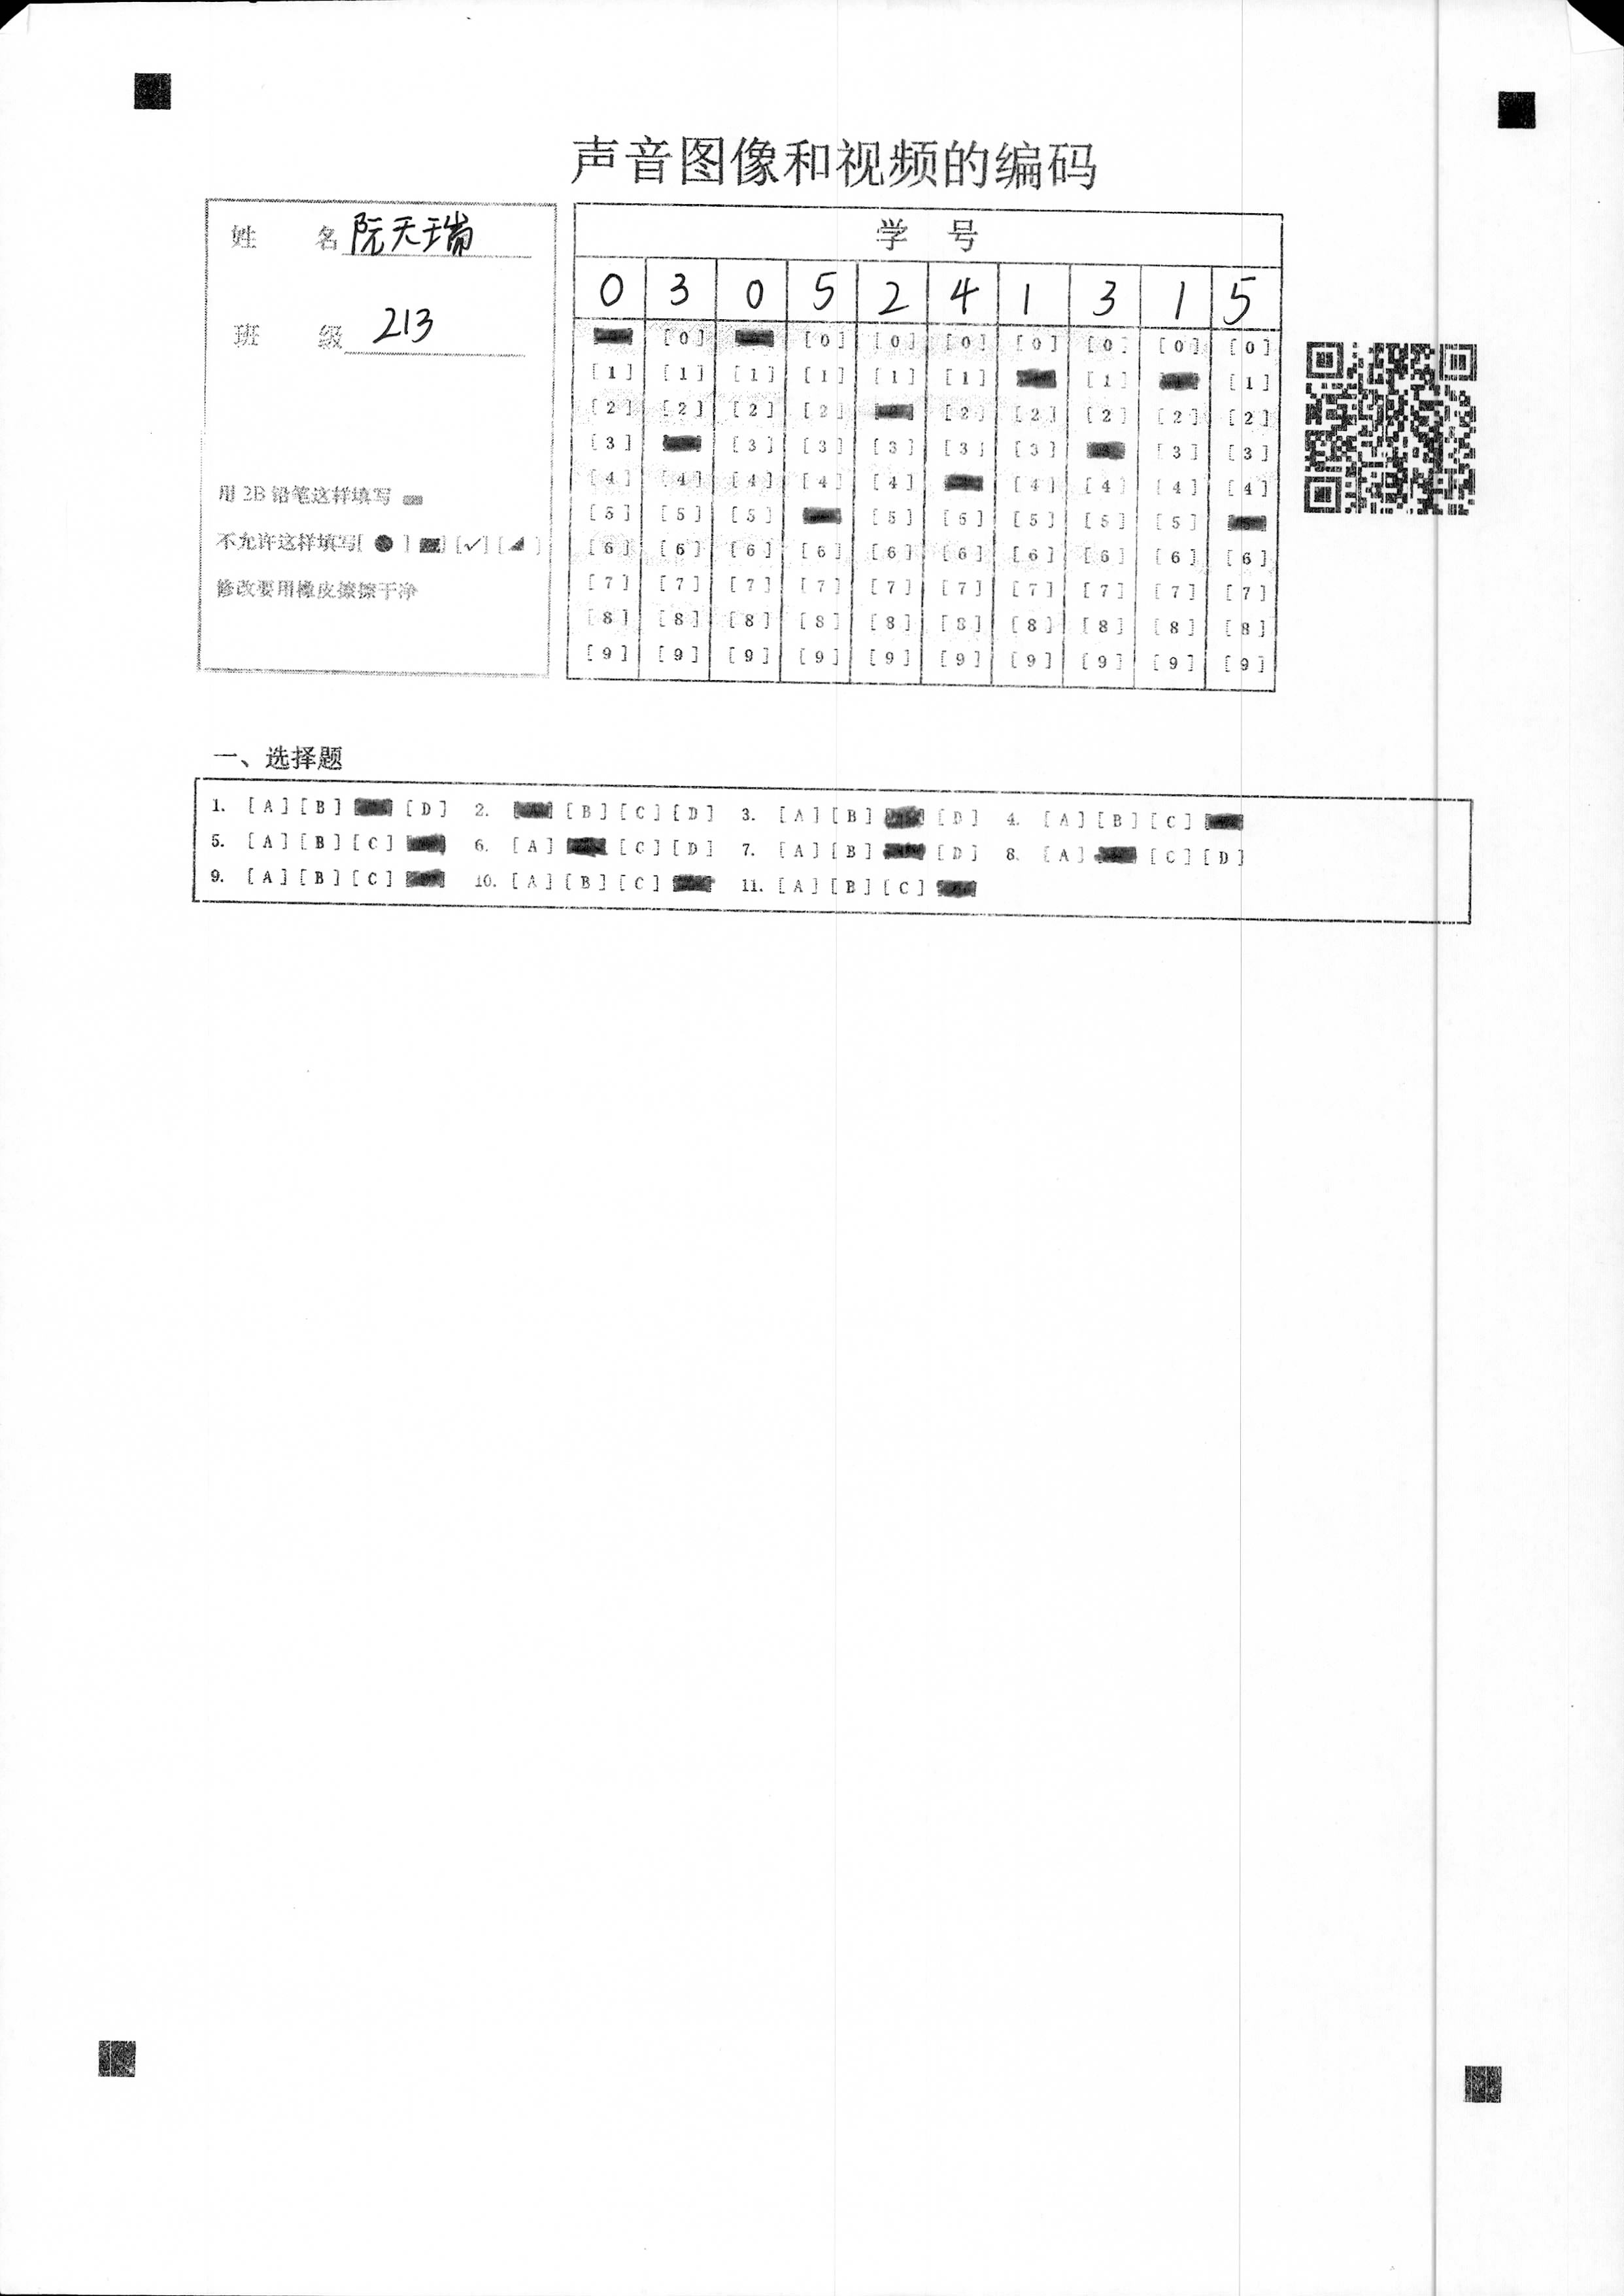 声音图像和视频的编码
姓 名 阮天瑞
班 级 213
用 2B 铅笔这样填写
不允许这样填写[ ● ] [✓] [ ]
修改要用橡皮擦擦干净
学 号
0 3 0 5 2 4 1 3 1 5
[0] [0] [0] [0] [0] [0] [0] [0]
[1] [1] [1] [1] [1] [1] [1] [1]
[2] [2] [2] [2] [2] [2] [2] [2] [2]
[3] [3] [3] [3] [3] [3] [3] [3]
[4] [4] [4] [4] [4] [4] [4] [4] [4]
[5] [5] [5] [5] [5] [5] [5] [5]
[6] [6] [6] [6] [6] [6] [6] [6] [6] [6]
[7] [7] [7] [7] [7] [7] [7] [7] [7] [7]
[8] [8] [8] [8] [8] [8] [8] [8] [8] [8]
[9] [9] [9] [9] [9] [9] [9] [9] [9] [9]
一、选择题
1. [A] [B] [D] 2. [B] [C] [D] 3. [A] [B] [D] 4. [A] [B] [C]
5. [A] [B] [C] 6. [A] [C] [D] 7. [A] [B] [D] 8. [A] [C] [D]
9. [A] [B] [C] 10. [A] [B] [C] 11. [A] [B] [C]